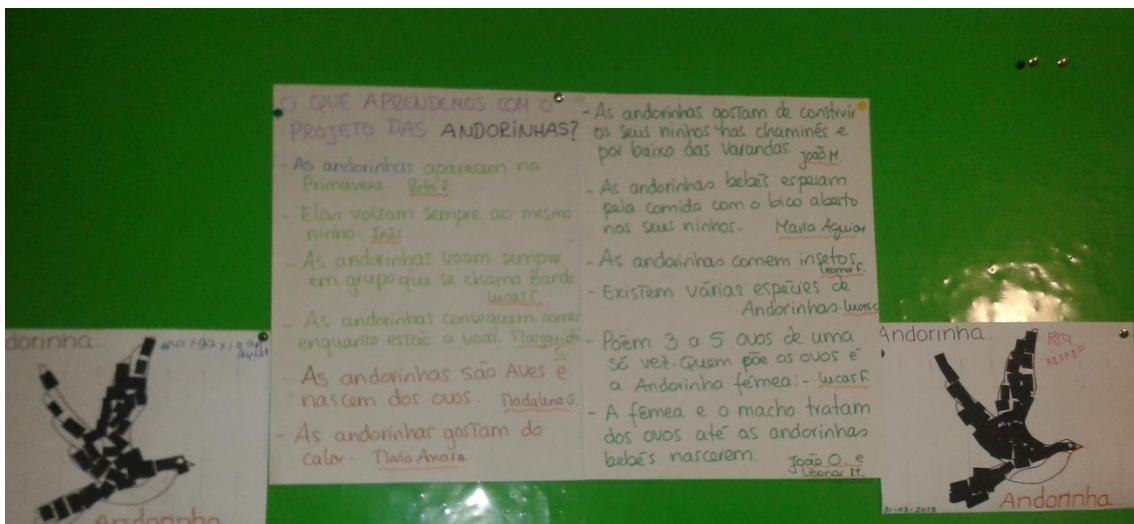 O QUE APRENDEMOS COM O
PROJETO DAS ANDORINHAS?
- As andorinhas aparecem na
Primavera. Rita P.
- Elas voltam sempre ao mesmo
ninho. Inês
- As andorinhas voam sempre
em grupo que se chama Bando
Lucas C.
- As andorinhas conseguem comer
enquanto estão a voar. Margarida
- As andorinhas são Aves e
nascem dos ovos. Madalena G.
- As andorinhas gostam do
calor. Maria Amara
- As andorinhas gostam de construir
os seus ninhos nas chaminés e
por baixo das varandas. João M.
- As andorinhas bebés esperam
pela comida com o bico aberto
nos seus ninhos. Maria Aguiar
- As andorinhas comem insetos.
Leonor F.
- Existem várias espécies de
Andorinhas. Lucas C
- Põem 3 a 5 ovos de uma
só vez. Quem põe os ovos é
a Andorinha fêmea. - Lucas F.
- A fêmea e o macho tratam
dos ovos até as andorinhas
bebés nascerem. João O. e
Leonor M.
dorinha
Andorinha
Andorinha
31-03-2015
Andorinha